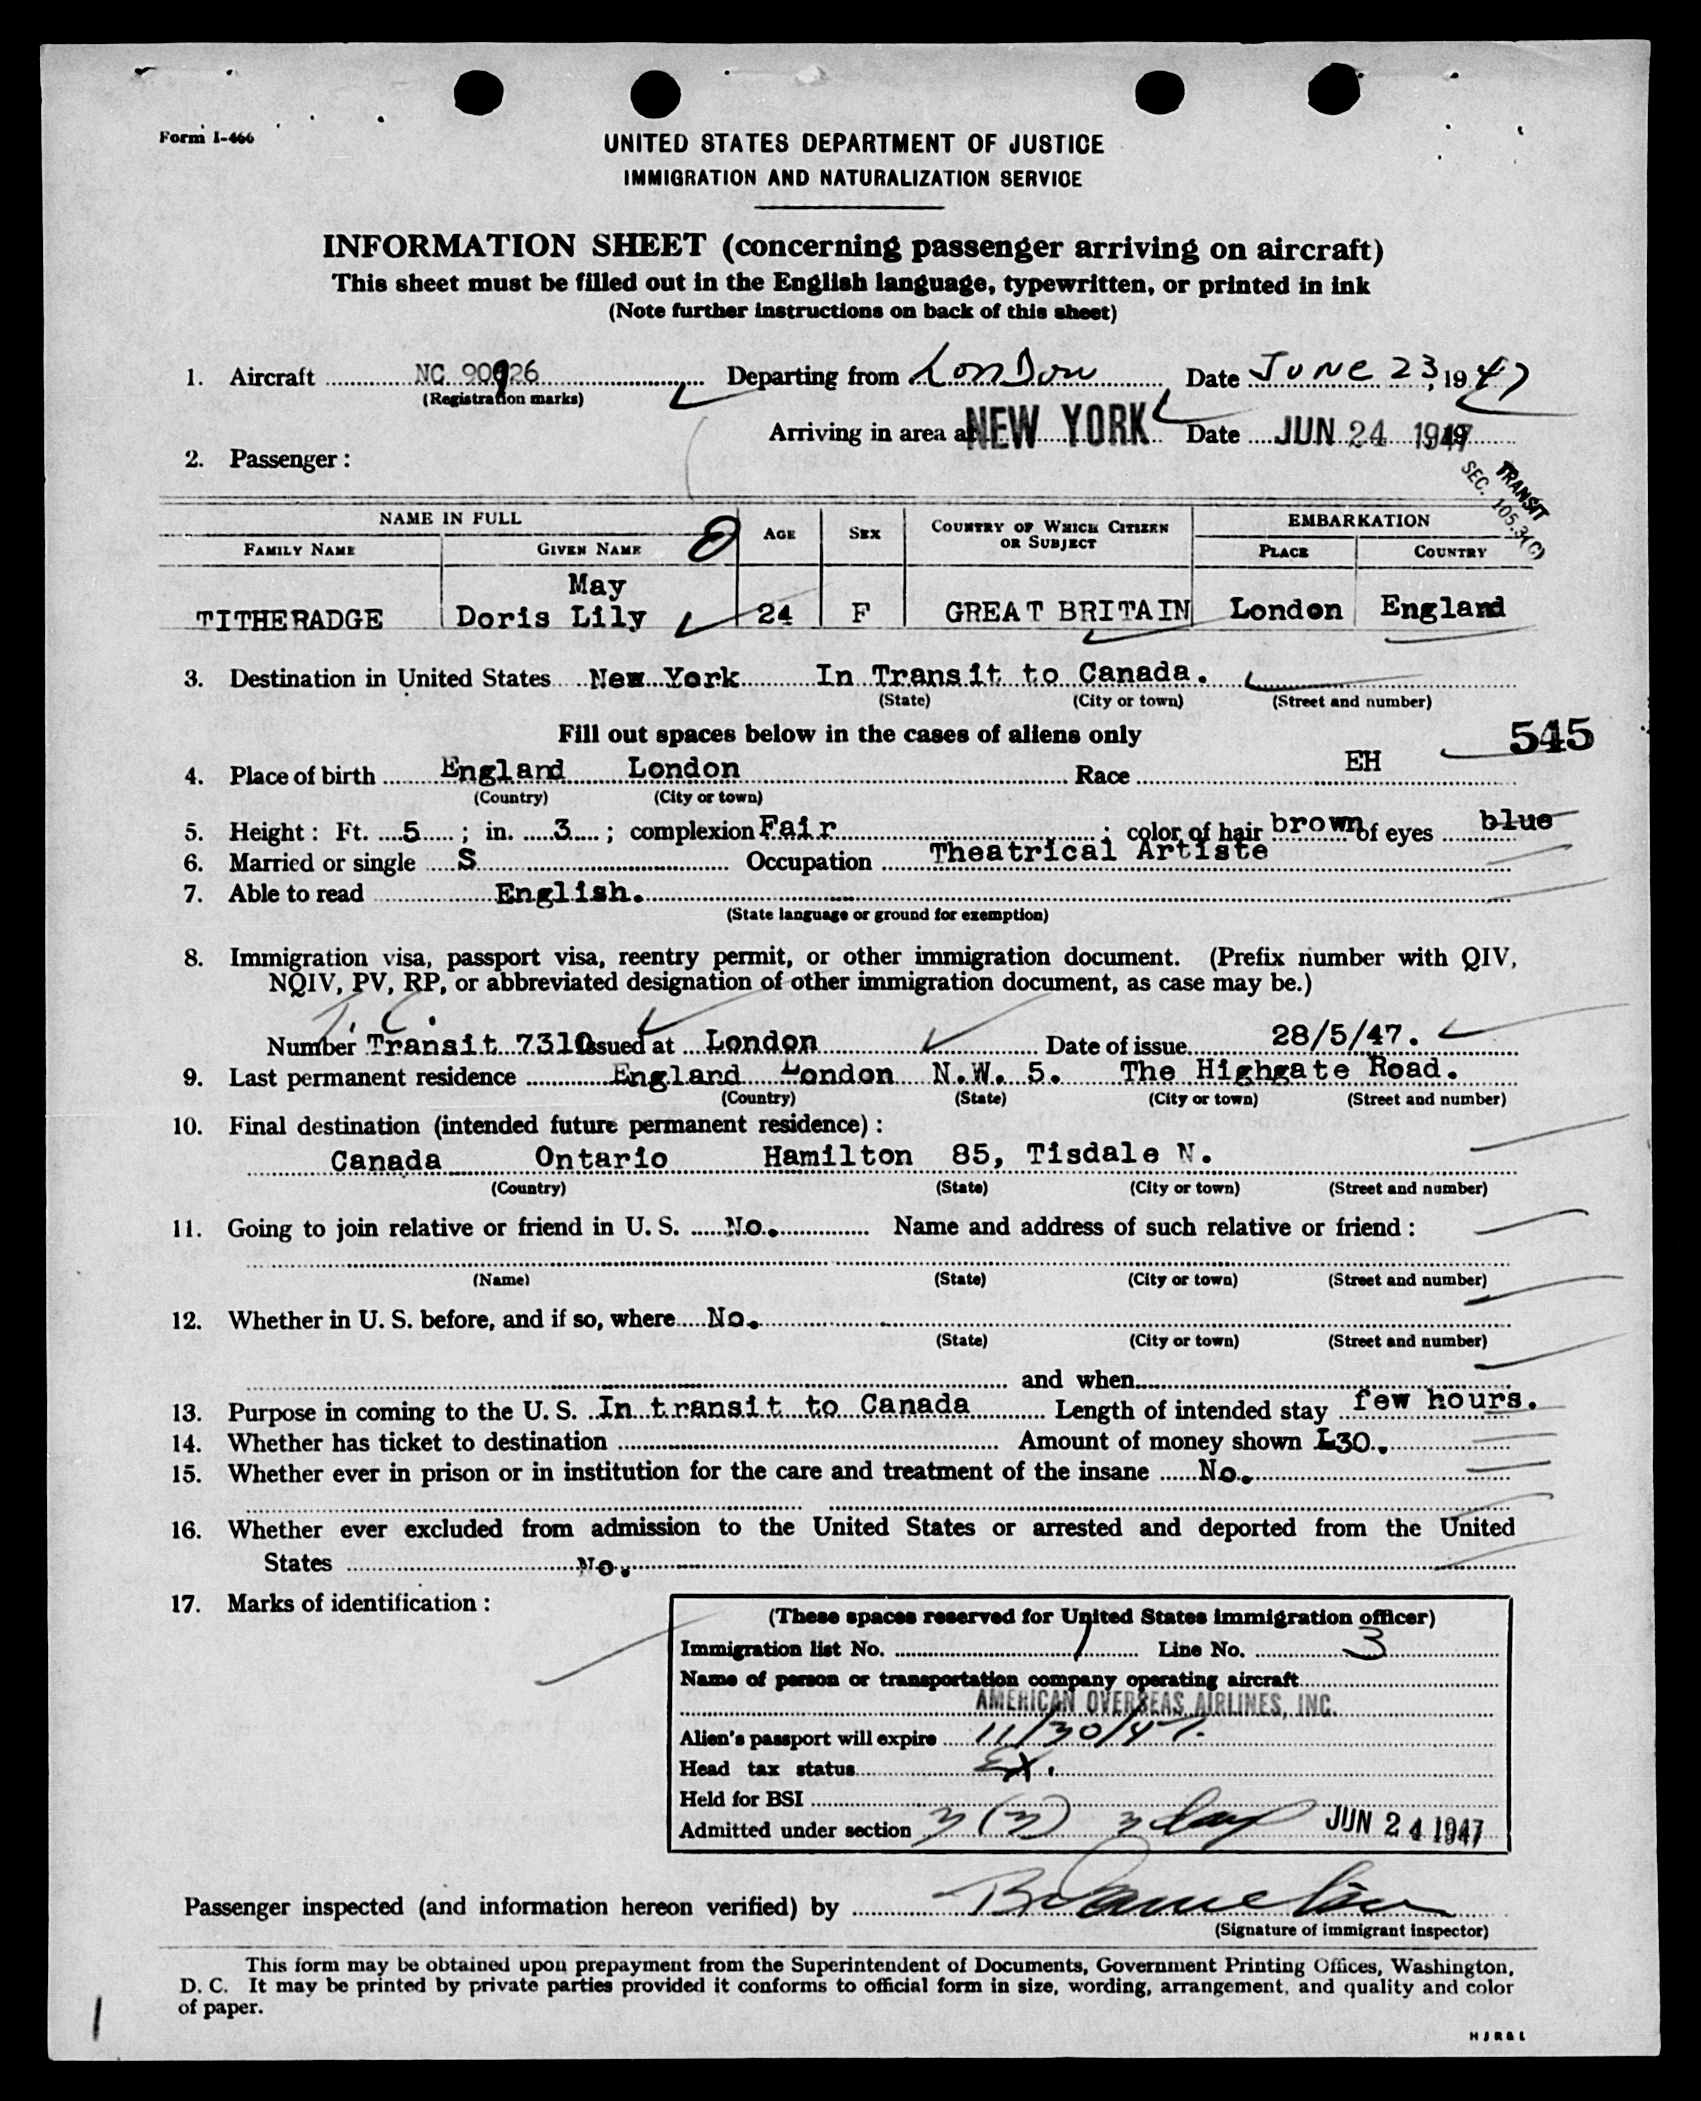 Form I-466
UNITED STATES DEPARTMENT OF JUSTICE
IMMIGRATION AND NATURALIZATION SERVICE
INFORMATION SHEET (concerning passenger arriving on aircraft)
This sheet must be filled out in the English language, typewritten, or printed in ink
(Note further instructions on back of this sheet)
1. Aircraft NC 90926 Departing from LonDon Date JuNe 23, 1947
(Registration marks)
Arriving in area at NEW YORK Date JUN 24 1947
2. Passenger:
TRANSIT
SEC. 105.3(C)
NAME IN FULL AGE SEX COUNTRY OF WHICH CITIZEN OR SUBJECT EMBARKATION
FAMILY NAME GIVEN NAME PLACE COUNTRY
May
TITHERADGE Doris Lily 24 F GREAT BRITAIN London England
3. Destination in United States New York In Transit to Canada.
(State) (City or town) (Street and number)
Fill out spaces below in the cases of aliens only 545
4. Place of birth England London Race EH
(Country) (City or town)
5. Height: Ft. 5; in. 3; complexion Fair; color of hair brown of eyes blue
6. Married or single S Occupation Theatrical Artiste
7. Able to read English.
(State language or ground for exemption)
8. Immigration visa, passport visa, reentry permit, or other immigration document. (Prefix number with QIV,
NQIV, PV, RP, or abbreviated designation of other immigration document, as case may be.)
Number Transit 7310 Issued at London Date of issue 28/5/47.
9. Last permanent residence England London N.W. 5. The Highgate Road.
(Country) (State) (City or town) (Street and number)
10. Final destination (intended future permanent residence):
Canada Ontario Hamilton 85, Tisdale N.
(Country) (State) (City or town) (Street and number)
11. Going to join relative or friend in U. S. No. Name and address of such relative or friend:
(Name) (State) (City or town) (Street and number)
12. Whether in U. S. before, and if so, where No.
(State) (City or town) (Street and number)
and when
13. Purpose in coming to the U. S. In transit to Canada Length of intended stay few hours.
14. Whether has ticket to destination Amount of money shown £30.
15. Whether ever in prison or in institution for the care and treatment of the insane No.
16. Whether ever excluded from admission to the United States or arrested and deported from the United
States No.
17. Marks of identification:
(These spaces reserved for United States immigration officer)
Immigration list No. 1 Line No. 3
Name of person or transportation company operating aircraft
AMERICAN OVERSEAS AIRLINES, INC.
Alien's passport will expire 11/30/47.
Head tax status Ex.
Held for BSI
Admitted under section 3 (3) 3 day JUN 24 1947
Passenger inspected (and information hereon verified) by
(Signature of immigrant inspector)
This form may be obtained upon prepayment from the Superintendent of Documents, Government Printing Offices, Washington,
D. C. It may be printed by private parties provided it conforms to official form in size, wording, arrangement, and quality and color
of paper.
HJR&L